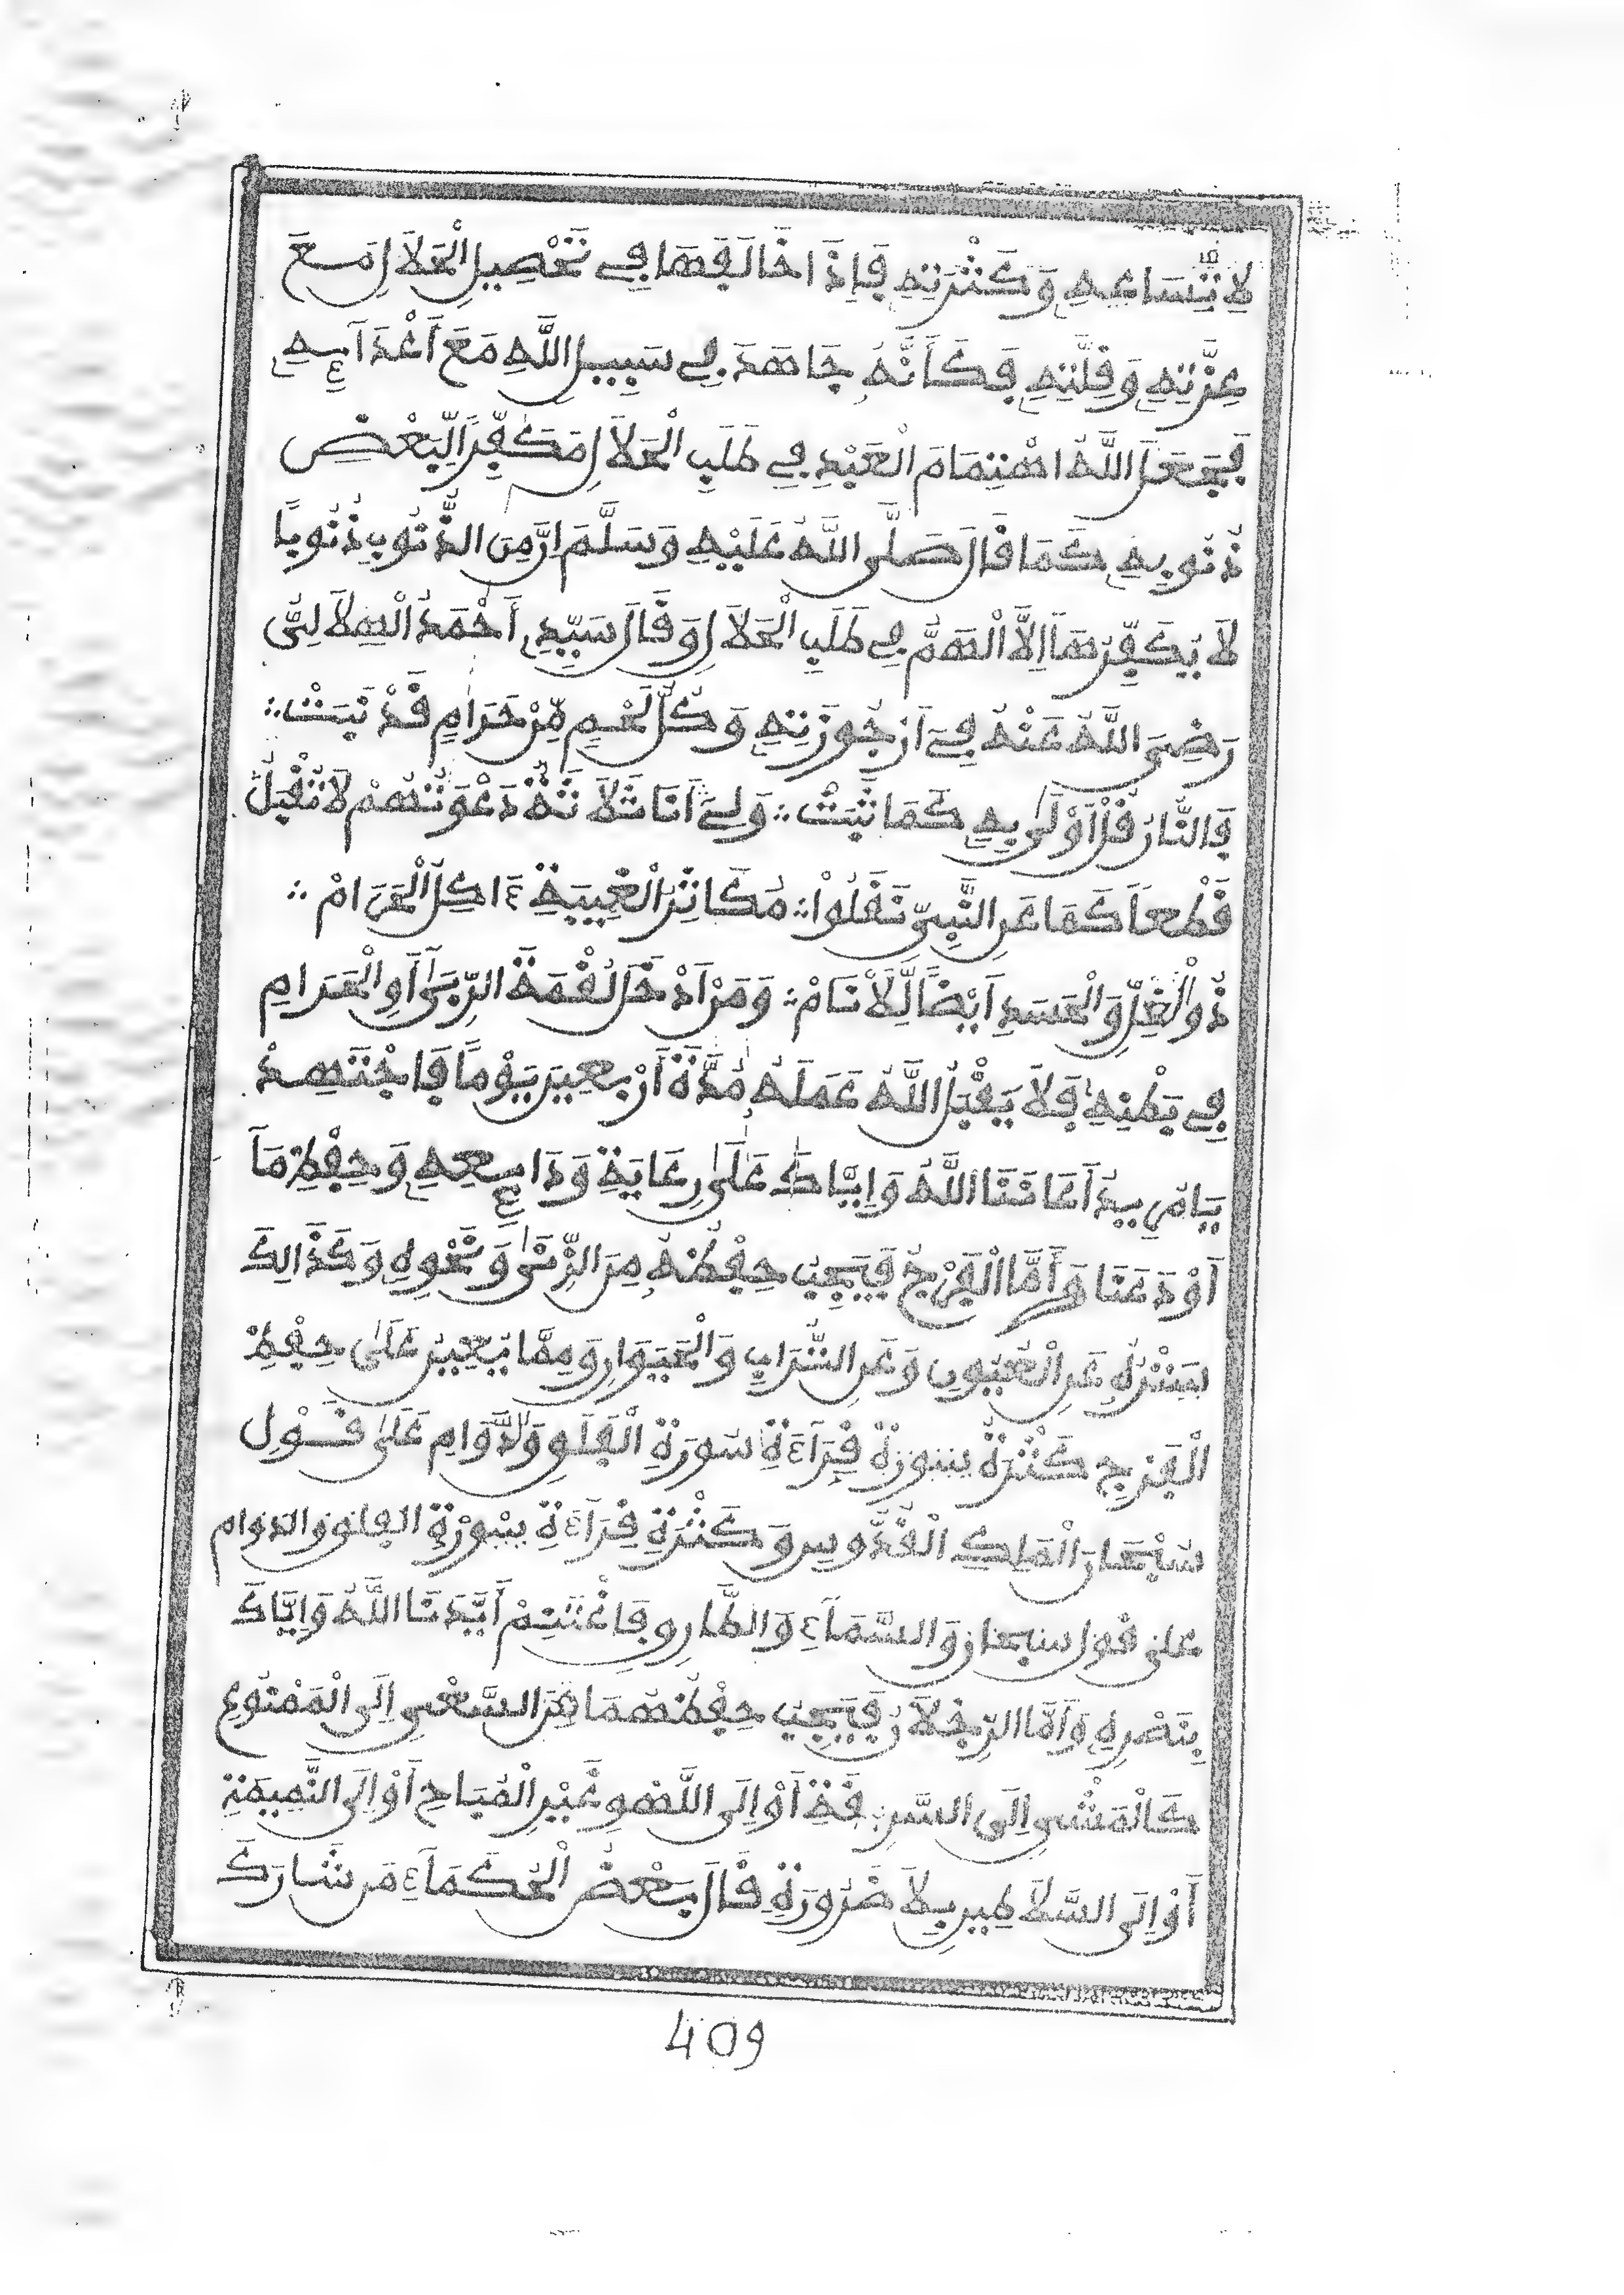 لِاتِّسَاعِهِ وَكَثْرَتِهِ فَإِذَا خَالَفَهَا فِي تَحْصِيلِ الْحَلَالِ مَعَ
عِزَّتِهِ وَقِلَّتِهِ فَكَأَنَّهُ جَاهَدَ فِي سَبِيلِ اللَّهِ مَعَ أَعْدَآئِهِ
فَيَجْعَلُ اللَّهُ اهْتِمَامَ الْعَبْدِ فِي طَلَبِ الْحَلَالِ مُكَفِّرًا لِّبَعْضِ
ذُنُوبِهِ كَمَا قَالَ صَلَّى اللَّهُ عَلَيْهِ وَسَلَّمَ إِنَّ مِنَ الذُّنُوبِ ذُنُوبًا
لَا يُكَفِّرُهَا إِلَّا الْهَمُّ فِي طَلَبِ الْحَلَالِ وَقَالَ سَيِّدِي أَحْمَدُ الْهِلَالِيُّ
رَضِيَ اللَّهُ عَنْهُ فِي أَرْجُوزَتِهِ وَكُلُّ لَحْمٍ مِّنْ حَرَامٍ قَدْ نَبَتْ ∴
فَالنَّارُ قُلْ أَوْلَى بِهِ كَمَا ثَبَتْ ∴ وَلِي أَنَا ثَلَاثَةٌ دَعْوَتُهُمْ لَا تُقْبَلُ
قَطْعًا كَمَا عَنِ النَّبِيِّ نَقَلُوا ∴ مُكَاثِرُ الْغِيبَةِ ءَاكِلُ الْحَرَامْ ∴
ذُو الْغِلِّ وَالْحَسَدِ أَيْضًا لِّلْأَنَامْ ∴ وَمَنْ أَدْخَلَ لُقْمَةَ الرِّبَى أَوِ الْحَرَامِ
فِي بَطْنِهِ فَلَا يَقْبَلُ اللَّهُ عَمَلَهُ مُدَّةَ أَرْبَعِينَ يَوْمًا فَاجْتَهِدْ
يَا مُرِيدُ أَعَانَنَا اللَّهُ وَإِيَّاكَ عَلَى رِعَايَةِ وَدَائِعِهِ وَحِفْظِ مَا
أَوْدَعَنَا وَأَمَّا الْفَرْجُ فَيَجِبُ حِفْظُهُ مِنَ الزِّنَى وَنَحْوِهِ وَكَذَالِكَ
بِسَتْرِهِ عَنِ الْعُيُونِ وَعَنِ التُّرَابِ وَالْحَيَوَانِ وَمِمَّا يُعِينُ عَلَى حِفْظِ
الْفَرْجِ كَثْرَةُ قِرَآءَةِ سُورَةِ الْفَلَقِ وَالدَّوَامِ عَلَى قَوْلِ
سُبْحَانَ الْمَلِكِ الْقُدُّوسِ وَكَثْرَةِ قِرَآءَةِ سُورَةِ الفلق والدوام
على قول سبحان وَالسَّمَآءِ وَالطَّارِقِ فَاغْتَنِمْ أَيَّدَنَا اللَّهُ وَإِيَّاكَ
بِنَصْرِهِ وَأَمَّا الرِّجْلَانِ فَيَجِبُ حِفْظُهُمَا مِنَ السَّعْيِ إِلَى الْمَمْنُوعِ
كَالْمَشْيِ إِلَى السَّرِقَةِ أَوْ إِلَى اللَّهْوِ غَيْرِ الْمُبَاحِ أَوْ إِلَى النَّمِيمَةِ
أَوْ إِلَى السَّلَاطِينِ بِلَا ضَرُورَةٍ قَالَ بَعْضُ الْحُكَمَآءِ مَن شَارَكَ
409